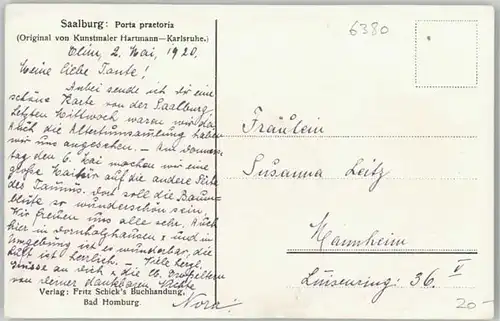 Saalburg: Porta praetoria
(Original von Kunstmaler Hartmann—Karlsruhe.)
2. Mai, 1920.
Meine liebe Tante!
Anbei sende ich Dir eine
schöne Karte von der Saalburg,
letzten Mittwoch waren wir da,
Auch die Altertumsamlung haben
wir uns angesehen. — Am Donners-
tag den 6. Mai machen wir eine
große auf die andere Seite
des Taunus. Dort soll die Baum-
blüte so wunderschön sein,
Wir freuen uns alle sehr. Auch
hier in Dornholzhausen und in
Umgebung ist es wunderbar, die
Luft ist herrlich. — Viele herzl.
Grüsse an Dich & die lb. Großeltern
von deiner dankbaren Nichte
Nora.
Verlag: Fritz Schick's Buchhandlung,
Bad Homburg.
6380
Fräulein
Susanna Leitz
Mannheim
Luisenring: 36 V
20-